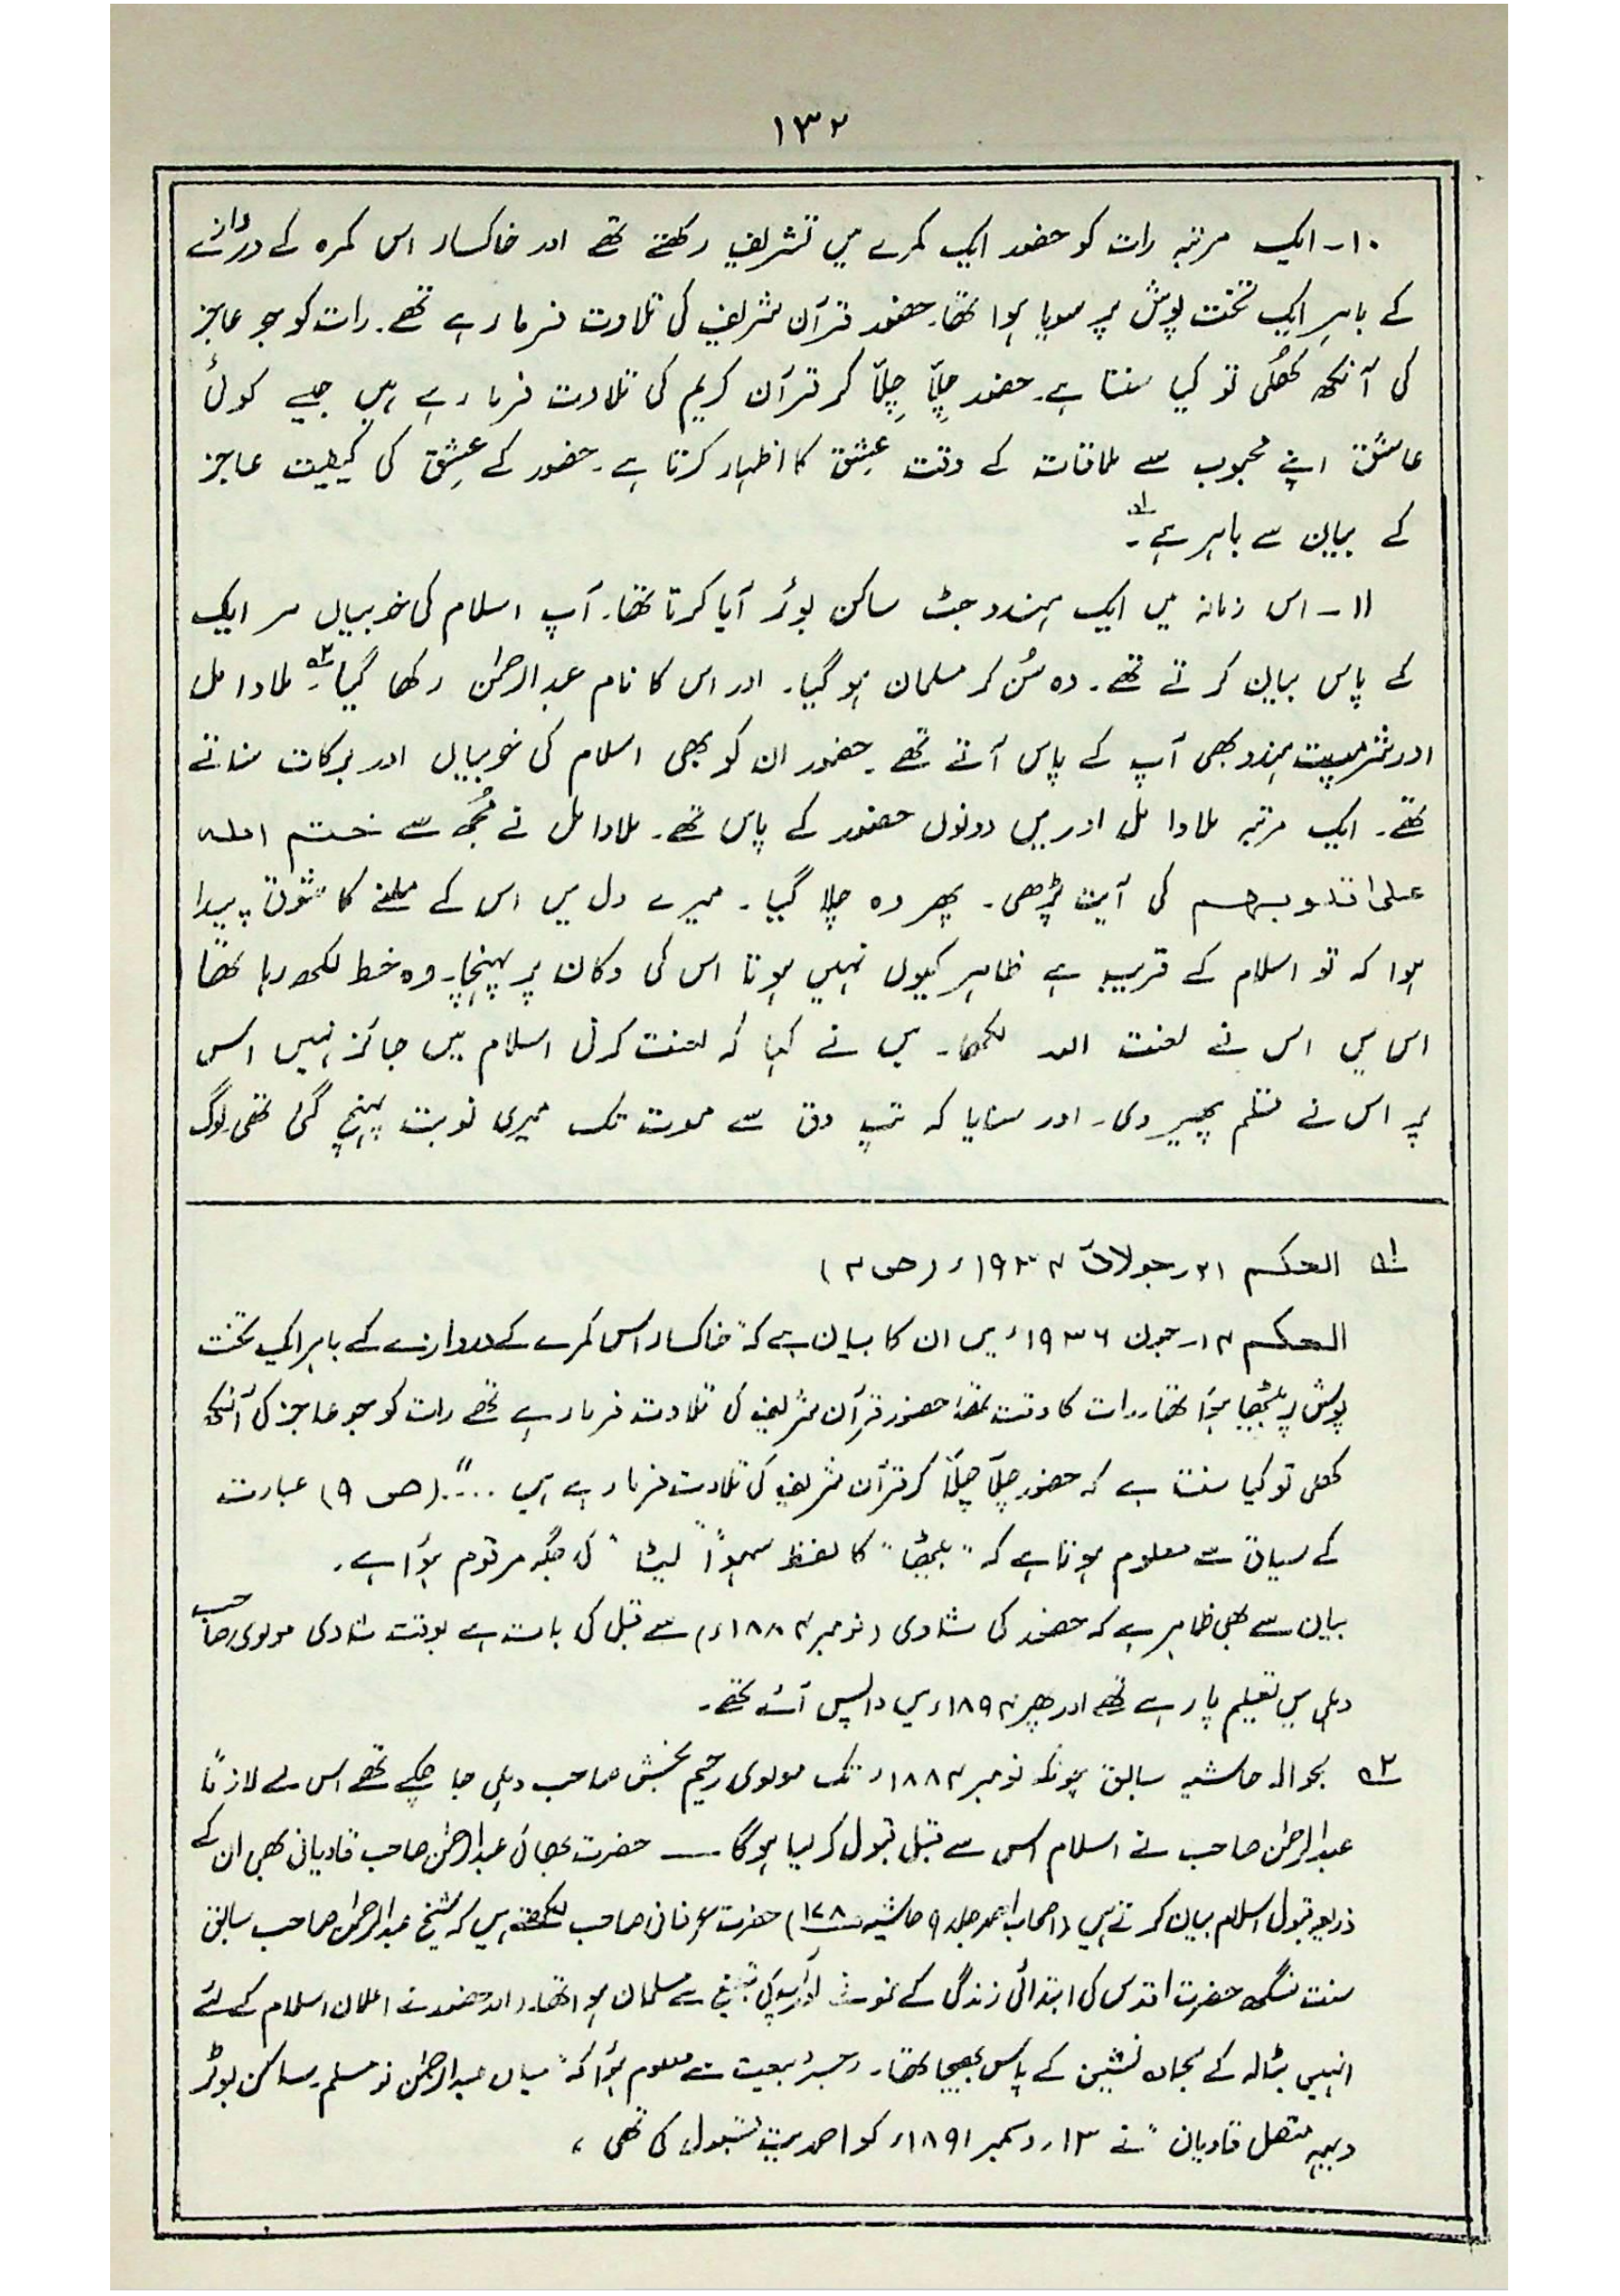 ۱۳۲
۱۰۔ ایک مرتبہ رات کو حضور ایک کمرے میں تشریف رکھتے تھے اور خاکسار اس کمرہ کے دروازے
کے باہر ایک تخت پوش پر سویا ہوا تھا۔ حضور قرآن شریف کی تلاوت فرما رہے تھے۔ رات کو جو عاجز
کی آنکھ کُھلی تو کیا سنتا ہے۔ حضور چِلّا چِلّا کر قرآن کریم کی تلاوت فرما رہے ہیں جیسے کوئی
عاشق اپنے محبوب سے ملاقات کے وقت عِشق کا اظہار کرتا ہے۔ حضور کے عِشق کی کیفیت عاجز
کے بیان سے باہر ہے۔ لہ
۱۱۔ اس زمانہ میں ایک ہندو جٹ ساکن بوٹر آیا کرتا تھا۔ آپ اسلام کی خوبیاں ہر ایک
کے پاس بیان کرتے تھے۔ وہ سُن کر مسلمان ہو گیا۔ اور اس کا نام عبدالرحمٰن رکھا گیا۔ ۲ہ ملاوامل
اور شرمپت ہندو بھی آپ کے پاس آتے تھے۔ حضور ان کو بھی اسلام کی خوبیاں اور برکات سناتے
تھے۔ ایک مرتبہ ملاوامل اور میں دونوں حضور کے پاس تھے۔ ملاوامل نے مُجھ سے ختم اللہ
علیٰ قلوبہم کی آیت پڑھی۔ پھر وہ چلا گیا۔ میرے دل میں اس کے ملنے کا شوق پیدا
ہوا کہ تو اسلام کے قریب ہے ظاہر کیوں نہیں ہوتا اس کی دکان پر پہنچا۔ وہ خط لکھ رہا تھا
اس میں اس نے لعنت اللہ لکھا۔ میں نے کہا کہ لعنت کرنی اسلام میں جائز نہیں اس
پر اس نے قلم پھیر دی۔ اور سنایا کہ تپ دق سے موت تک میری نوبت پہنچ گئی تھی۔ لوگ
لہ الحکم ۲۱ر جولائی ۱۹۳۴ء (ص ۴)
الحکم ۱۴ر جون ۱۹۳۶ء میں ان کا بیان ہے کہ "خاکسار اس کمرے کے دروازے کے باہر ایک تخت
پوش پر بیٹھا ہؤا تھا۔ رات کا وقت تھا حضور قرآن شریف کی تلاوت فرما رہے تھے رات کو جو عاجز کی آنکھ
کھلی تو کیا سنتا ہے کہ حضور چلّا چلّا کر قرآن شریف کی تلاوت فرما رہے ہیں ....." (ص ۹) عبارت
کے سیاق سے معلوم ہوتا ہے کہ "بیٹھا" کا لفظ سہواً "لیٹا" کی جگہ مرقوم ہؤا ہے۔
بیان سے بھی ظاہر ہے کہ حضور کی شادی (نومبر ۱۸۸۴ء) سے قبل کی بات ہے بوقت شادی مولوی صاحب
دہلی میں تعلیم پا رہے تھے اور پھر ۱۸۹۴ء میں واپس آئے تھے۔
۲ہ بحوالہ حاشیہ سابق چونکہ نومبر ۱۸۸۴ء تک مولوی رحیم بخش صاحب دہلی جا چکے تھے اس لئے لازماً
عبدالرحمٰن صاحب نے اسلام اس سے قبل قبول کر لیا ہوگا ــــ حضرت بھائی عبدالرحمٰن صاحب قادیانی بھی ان کے
ذریعہ قبول اسلام بیان کرتے ہیں (اصحاب احمد جلد ۹ حاشیہ ص ۱۲۸) حضرت عرفانی صاحب لکھتے ہیں کہ شیخ عبدالرحمٰن صاحب سابق
سنت سنگھ حضرت اقدس کی ابتدائی زندگی کے نمونہ اور آپ کی تبلیغ سے مسلمان ہوا تھا۔ اور حضور نے اعلان اسلام کے لئے
انہیں بٹالہ کے سجادہ نشین کے پاس بھیجا تھا۔ رجسٹر بیعت سے معلوم ہؤا کہ "میاں عبدالرحمٰن نومسلم ساکن بوٹر
دیہہ متصل قادیان" نے ۱۳ر دسمبر ۱۸۹۱ء کو احمدیت قبول کی تھی ،